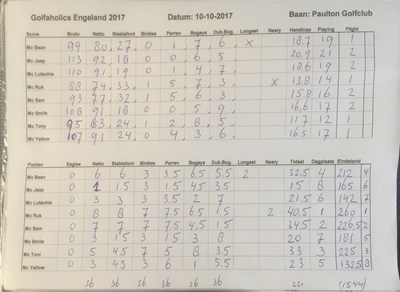 Golfaholics Engeland 2017 Datum: 10-10-2017 Baan: Paulton Golfclub
Score Bruto Netto Stableford Birdies Parren Bogeys Dub.Bog. Longest Neary Handicap Playing Flight
Mc Baan 99 80 27 0 1 7 6 X 18.7 19 1
Mc Jaap 113 92 18 0 0 6 5 20.9 21 2
Mc Lutschie 110 91 19 0 1 4 7 18.6 19 2
Mc Ruk 88 74 33 1 5 7 3 X 13.8 14 1
Mc Sam 93 77 32 1 5 6 3 15.8 16 2
Mc Smile 108 91 18 0 0 5 9 16.6 17 2
Mc Toni 95 83 24 1 2 8 5 11.7 12 1
Mc Yellow 107 91 24 0 4 3 6 16.5 17 1
Punten Eagles Netto Stableford Birdies Parren Bogeys Dub.Bog. Longest Neary Totaal Dagplaats Eindstand
Mc Baan 0 6 6 3 3.5 6.5 5.5 2 32.5 4 212 4
Mc Jaap 0 1 1.5 3 1.5 4.5 3.5 15 8 165 6
Mc Lutschie 0 3 3 3 3.5 2 7 21.5 6 142 7
Mc Ruk 0 8 8 7 7.5 6.5 1.5 2 40.5 1 260 1
Mc Sam 0 7 7 7 7.5 4.5 1.5 34.5 2 226.5 2
Mc Smile 0 3 1.5 3 1.5 3 8 20 7 181 5
Mc Toni 0 5 4.5 7 5 8 3.5 33 3 225 3
Mc Yellow 0 3 4.5 3 6 1 5.5 23 5 132.5 8
36 36 36 36 36 36 (1544)